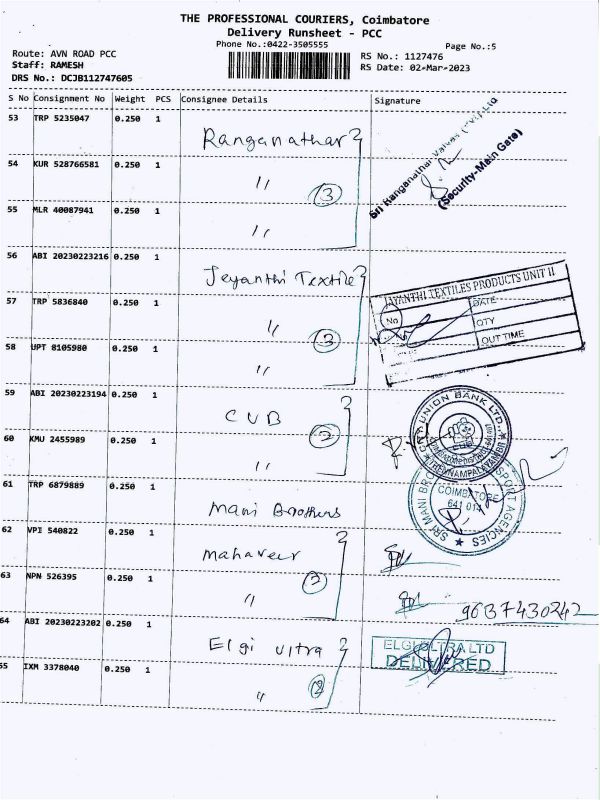 THE PROFESSIONAL COURIERS, Coimbatore
Delivery Runsheet - PCC
Phone No.:0422-3505555
Page No.:5
Route: AVN ROAD PCC
RS No.: 1127476
Staff: RAMESH
RS Date: 02-Mar-2023
DRS No.: DCJB112747605
S No Consignment No Weight PCS Consignee Details Signature
53 TRP 5235047 0.250 1 Ranganathar
Sri Ranganathar Valves (Security-Main Gate)
54 KUR 528766581 0.250 1 〃 3
55 MLR 40087941 0.250 1 〃
56 ABI 20230223216 0.250 1 Jeyanthi Textile
JAYANTHI TEXTILES PRODUCTS UNIT II
No DATE
QTY
OUT TIME
57 TRP 5836840 0.250 1 〃 3
58 UPT 8105980 0.250 1 〃
59 ABI 20230223194 0.250 1 CUB 2
UNION BANK LTD.
60 KMU 2455989 0.250 1 〃
61 TRP 6879889 1 Mani Brothers
SRI MANI AGENCIES
COIMBATORE
641 014
62 VPI 540822 0.250 1 Mahaveer
63 NPN 526395 0.250 1 〃 2
9637430242
64 ABI 20230223202 0.250 1 Elgi Ultra
ELGI ULTRA LTD
DELIVERED
55 IXM 3378040 0.250 1 〃 2